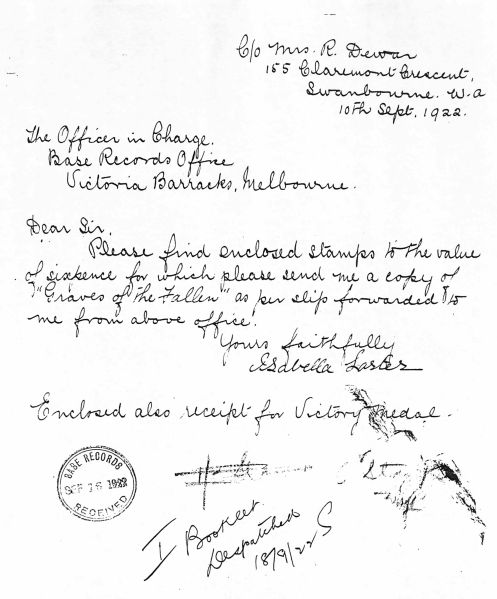 C/o Mrs. R. Dewar
155 Claremont Crescent,
Swanbourne. W.a
10th Sept. 1922.
The Officer in Charge.
Base Records Office
Victoria Barracks, Melbourne.
Dear Sir,
Please find enclosed stamps to the value
of sixpence for which please send me a copy of
"Graves of the Fallen" as per slip forwarded to
me from above office.
Yours faithfully
Isabella
Enclosed also receipt for Victory Medal.
BASE RECORDS
SEP 16 1922
RECEIVED
I Booklet
Despatched
18/9/22